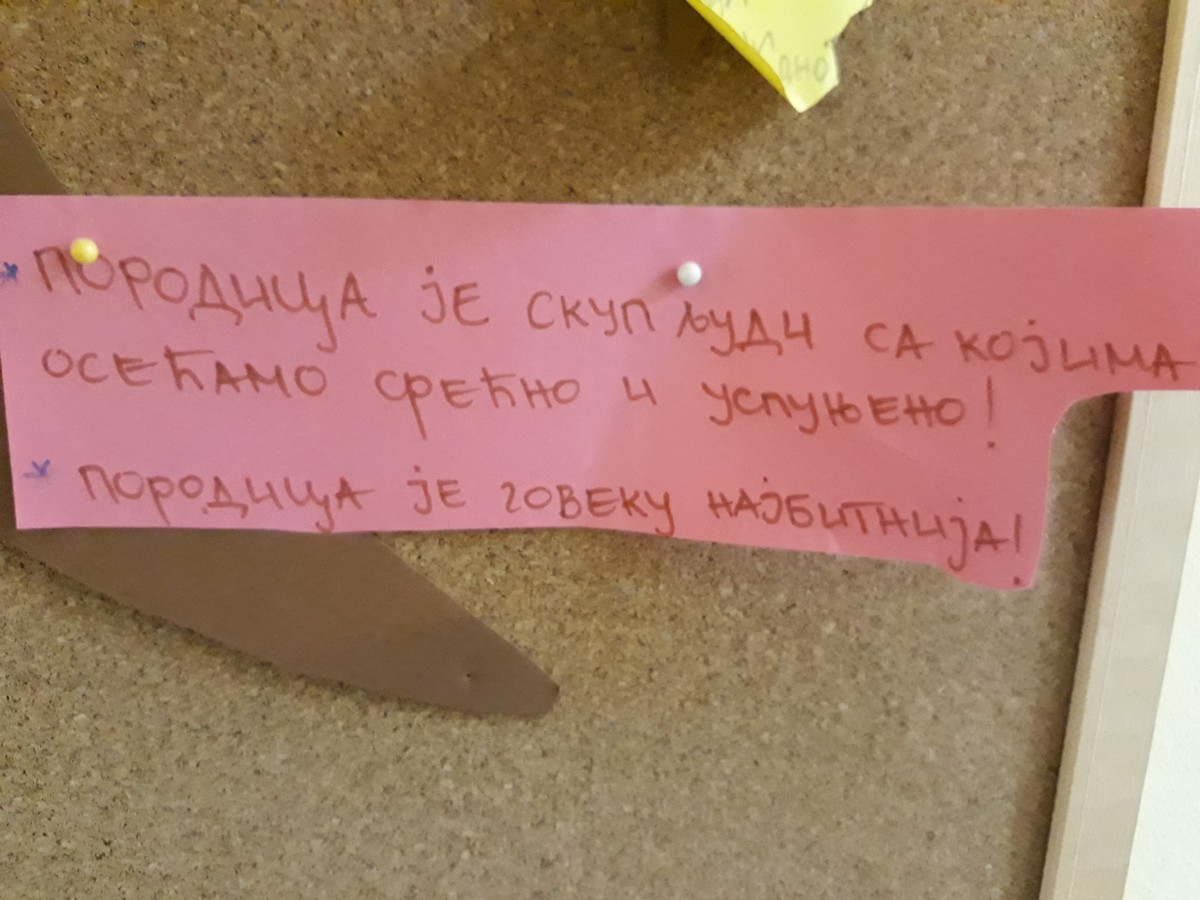 дно
* ПОРОДИЦА ЈЕ СКУП ЉУДИ СА КОЈИМА
ОСЕЋАМО СРЕЋНО И УСПУЊЕНО!
* ПОРОДИЦА ЈЕ ЧОВЕКУ НАЈБИТНИЈА!